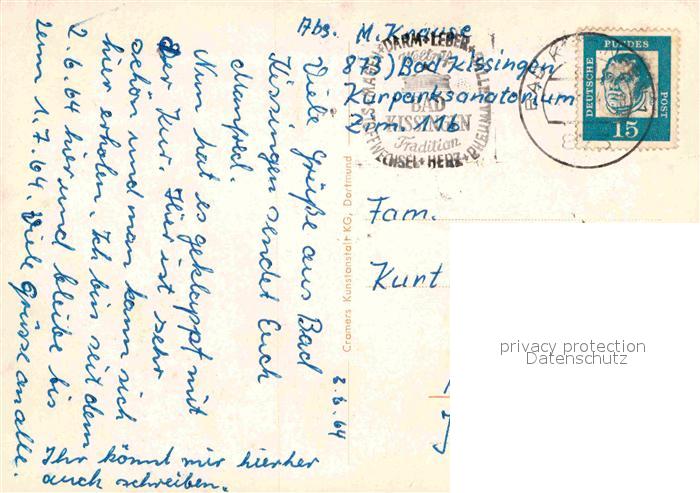 Abs. M. Krause
873) Bad Kissingen
Kurparksanatorium
Zim. 116
DARM + LEBER
GALLE
RHEUMA
HERZ
BAD
KISSINGEN
Tradition
DEUTSCHE
BUNDES
POST
15
Fam.
Kurt
Cramers Kunstanstalt KG, Dortmund
2.6.64
Viele Grüße aus Bad
Kissingen sendet Euch
Mumpel.
Nun hat es geklappt mit
der Kur. Hier ist sehr
schön und man kann sich
hier erholen. Ich bin seit dem
2.6.64 hier und bleibe bis
zum 1.7.64. Viele Grüsse an alle.
Ihr könnt mir hierher
auch schreiben.
privacy protection
Datenschutz